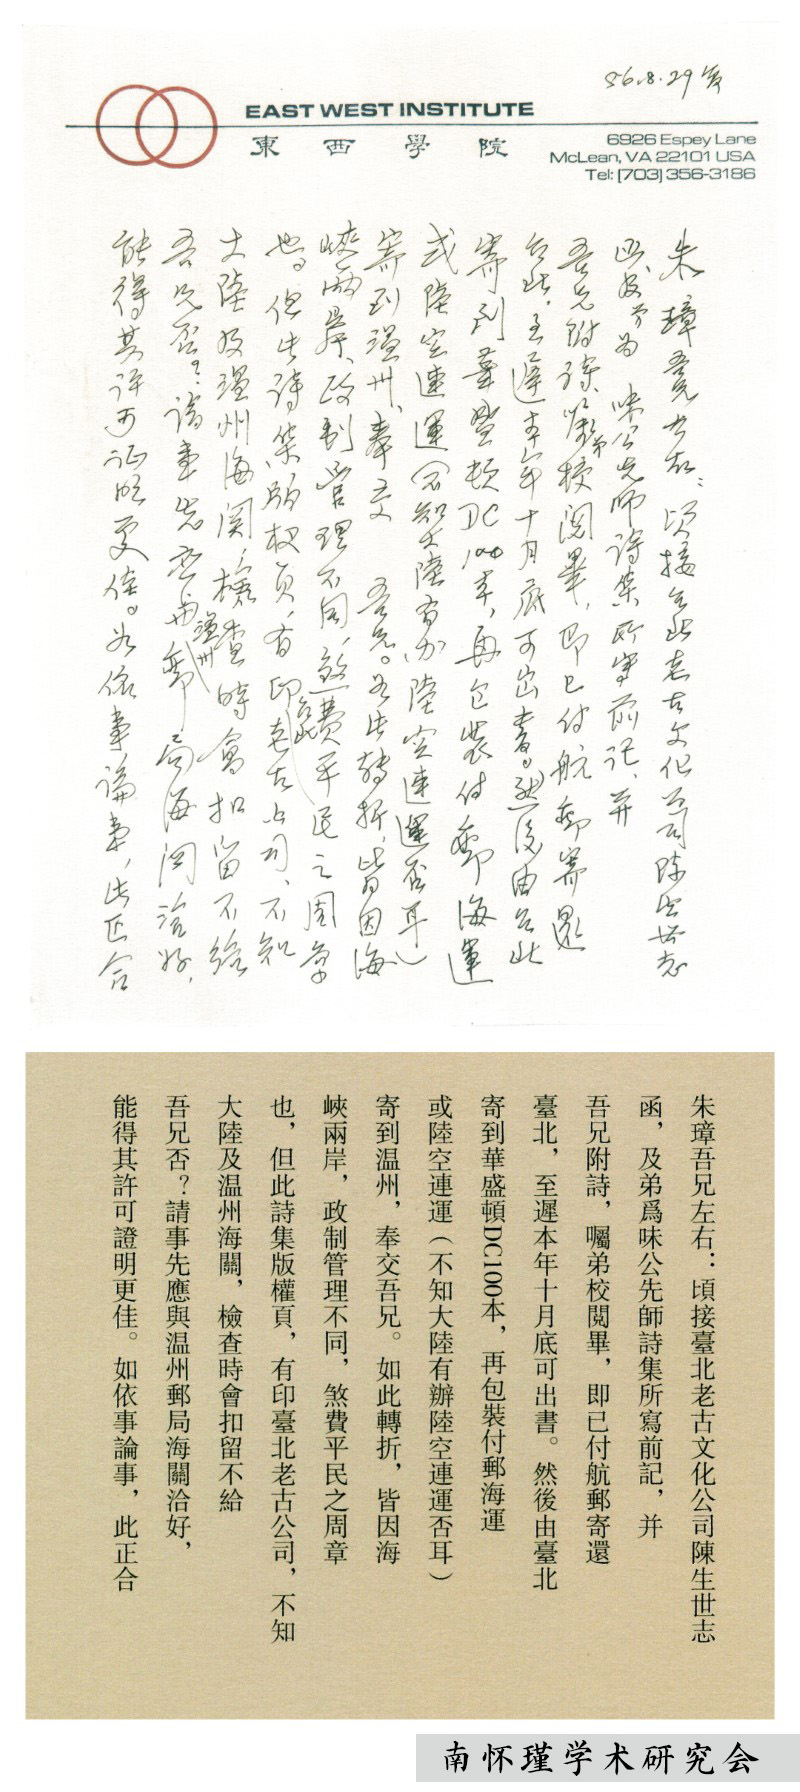 EAST WEST INSTITUTE
東西學院
6926 Espey Lane
McLean, VA 22101 USA
Tel: (703) 356-3186
朱璋吾兄左右：頃接台北老古文化公司陳生世志
函，及弟为味公先師詩集所寫前記，并
吾兄附詩，囑弟校閱畢，即已付航郵寄還
台北，至遲本年十月底可出書。然後由台北
寄到華盛頓DC100本，再包裝付郵海運
或陸空連運（不知大陸有办陸空連運否耳）
寄到温州，奉交 吾兄。如此轉折，皆因海
峽兩岸，政制管理不同，煞費平民之周章
也。但此詩集版权頁，有印台北老古公司，不知
大陸及温州海関，檢查時會扣留不給
吾兄否？請事先應与温州郵局海関洽好，
能得其許可证明更佳。如依事論事，此正合
朱璋吾兄左右：頃接臺北老古文化公司陳生世志
函，及弟爲味公先師詩集所寫前記，并
吾兄附詩，囑弟校閱畢，即已付航郵寄還
臺北，至遲本年十月底可出書。然後由臺北
寄到華盛頓DC100本，再包裝付郵海運
或陸空連運（不知大陸有辦陸空連運否耳）
寄到温州，奉交吾兄。如此轉折，皆因海
峽兩岸，政制管理不同，煞費平民之周章
也，但此詩集版權頁，有印臺北老古公司，不知
大陸及温州海關，檢查時會扣留不給
吾兄否？請事先應與温州郵局海關洽好，
能得其許可證明更佳。如依事論事，此正合
南怀瑾学术研究会